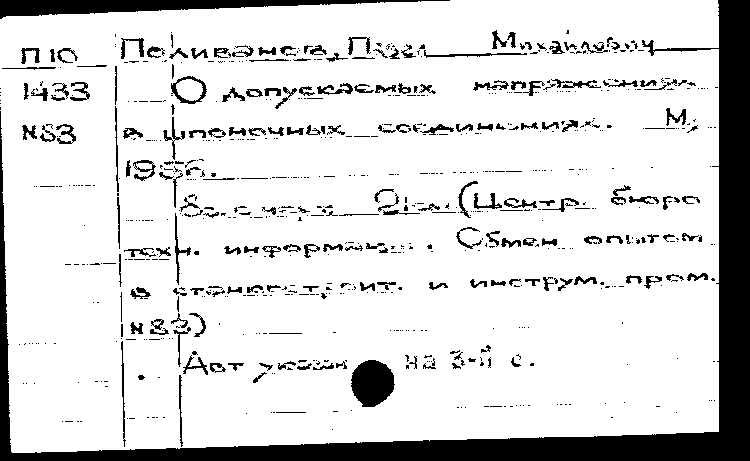 П10 Павел Михайлович
1433 О допускаемых напряжениях
N83 в шпоночных соединениях. М.,
1956.
8с. с черт. 21см. (Центр. бюро
техн. информации. Обмен опытом
в станкостроит. и инструм. пром.
N83)
Авт указан на 3-й с.